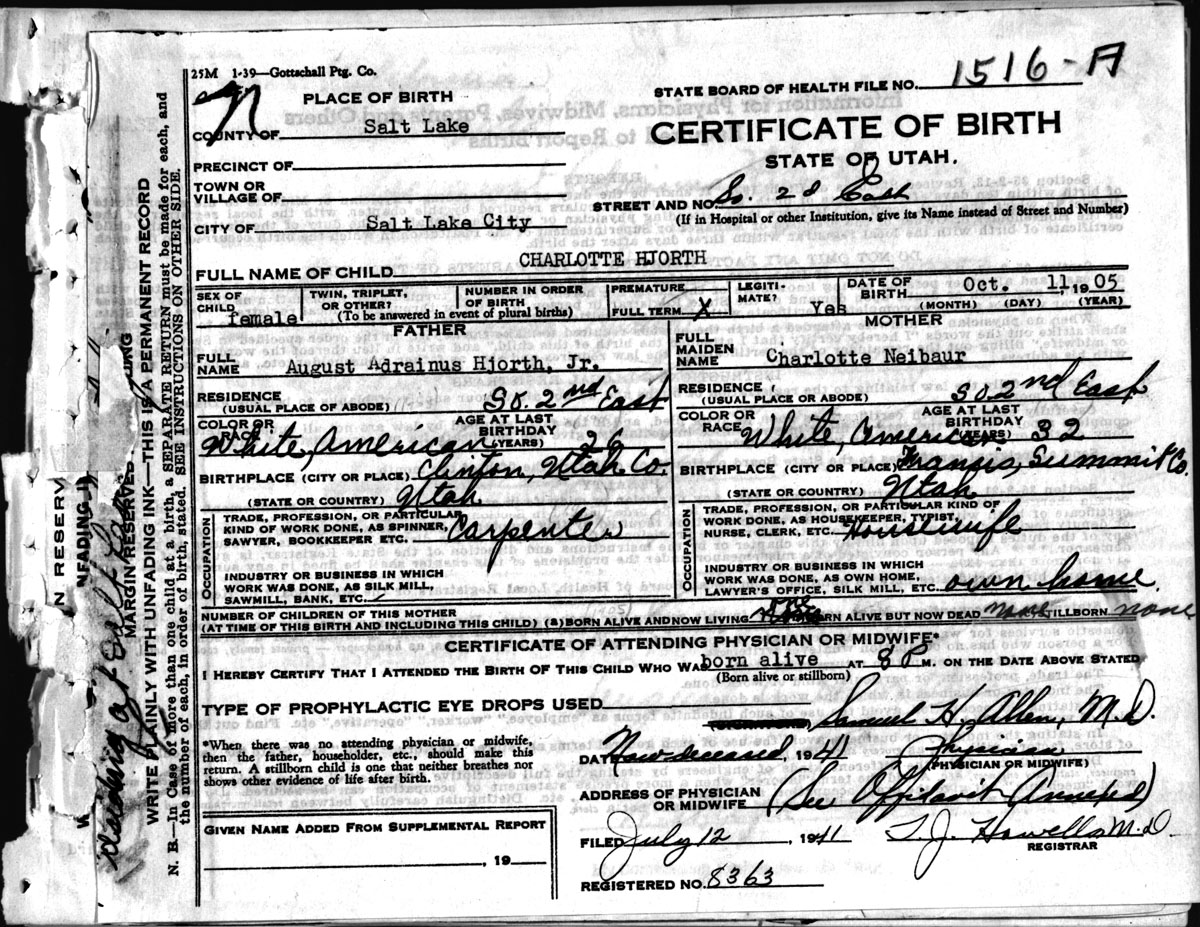 25M 1-39—Gottschall Ptg. Co.
STATE BOARD OF HEALTH FILE NO. 1516-A
N
PLACE OF BIRTH
COUNTY OF Salt Lake
CERTIFICATE OF BIRTH
STATE OF UTAH.
PRECINCT OF
TOWN OR
VILLAGE OF
STREET AND NO. So. 2d East
(If in Hospital or other Institution, give its Name instead of Street and Number)
CITY OF Salt Lake City
FULL NAME OF CHILD CHARLOTTE HJORTH
SEX OF CHILD female
TWIN, TRIPLET, OR OTHER?
NUMBER IN ORDER OF BIRTH
(To be answered in event of plural births)
PREMATURE
FULL TERM X
LEGITI-MATE? Yes
DATE OF BIRTH Oct. 11, 1905
(MONTH) (DAY) (YEAR)
FATHER
FULL NAME August Adrainus Hjorth, Jr.
RESIDENCE (USUAL PLACE OF ABODE) So. 2nd East
COLOR OR RACE White, American
AGE AT LAST BIRTHDAY (YEARS) 26
BIRTHPLACE (CITY OR PLACE) Clinton, Utah Co.
(STATE OR COUNTRY) Utah
OCCUPATION
TRADE, PROFESSION, OR PARTICULAR
KIND OF WORK DONE, AS SPINNER,
SAWYER, BOOKKEEPER ETC. Carpenter
INDUSTRY OR BUSINESS IN WHICH
WORK WAS DONE, AS SILK MILL,
SAWMILL, BANK, ETC.
MOTHER
FULL MAIDEN NAME Charlotte Neibaur
RESIDENCE (USUAL PLACE OR ABODE) So. 2nd East
COLOR OR RACE White, American
AGE AT LAST BIRTHDAY (YEARS) 32
BIRTHPLACE (CITY OR PLACE) Francis, Summit Co.
(STATE OR COUNTRY) Utah
OCCUPATION
TRADE, PROFESSION, OR PARTICULAR KIND OF
WORK DONE, AS HOUSEKEEPER, TYPIST,
NURSE, CLERK, ETC. Housewife
INDUSTRY OR BUSINESS IN WHICH
WORK WAS DONE, AS OWN HOME,
LAWYER'S OFFICE, SILK MILL, ETC. own home
NUMBER OF CHILDREN OF THIS MOTHER
(AT TIME OF THIS BIRTH AND INCLUDING THIS CHILD) (a) BORN ALIVE AND NOW LIVING BORN ALIVE BUT NOW DEAD none STILLBORN none
CERTIFICATE OF ATTENDING PHYSICIAN OR MIDWIFE*
I HEREBY CERTIFY THAT I ATTENDED THE BIRTH OF THIS CHILD WHO WAS born alive AT 8 P M. ON THE DATE ABOVE STATED
(Born alive or stillborn)
TYPE OF PROPHYLACTIC EYE DROPS USED
Samuel H. Allen, M.D.
*When there was no attending physician or midwife,
then the father, householder, etc., should make this
return. A stillborn child is one that neither breathes nor
shows other evidence of life after birth.
DATE Now deceased, 1941 Physician
(PHYSICIAN OR MIDWIFE)
ADDRESS OF PHYSICIAN
OR MIDWIFE (See Affidavit Annexed)
GIVEN NAME ADDED FROM SUPPLEMENTAL REPORT
, 19
FILED July 12, 1941 T. J. Howells M.D.
REGISTRAR
REGISTERED NO. 8363
MARGIN RESERVED
WRITE PLAINLY WITH UNFADING INK—THIS IS A PERMANENT RECORD
N. B.—In Case of more than one child at a birth, a SEPARATE RETURN must be made for each, and
the number of each, in order of birth, stated. SEE INSTRUCTIONS ON OTHER SIDE.